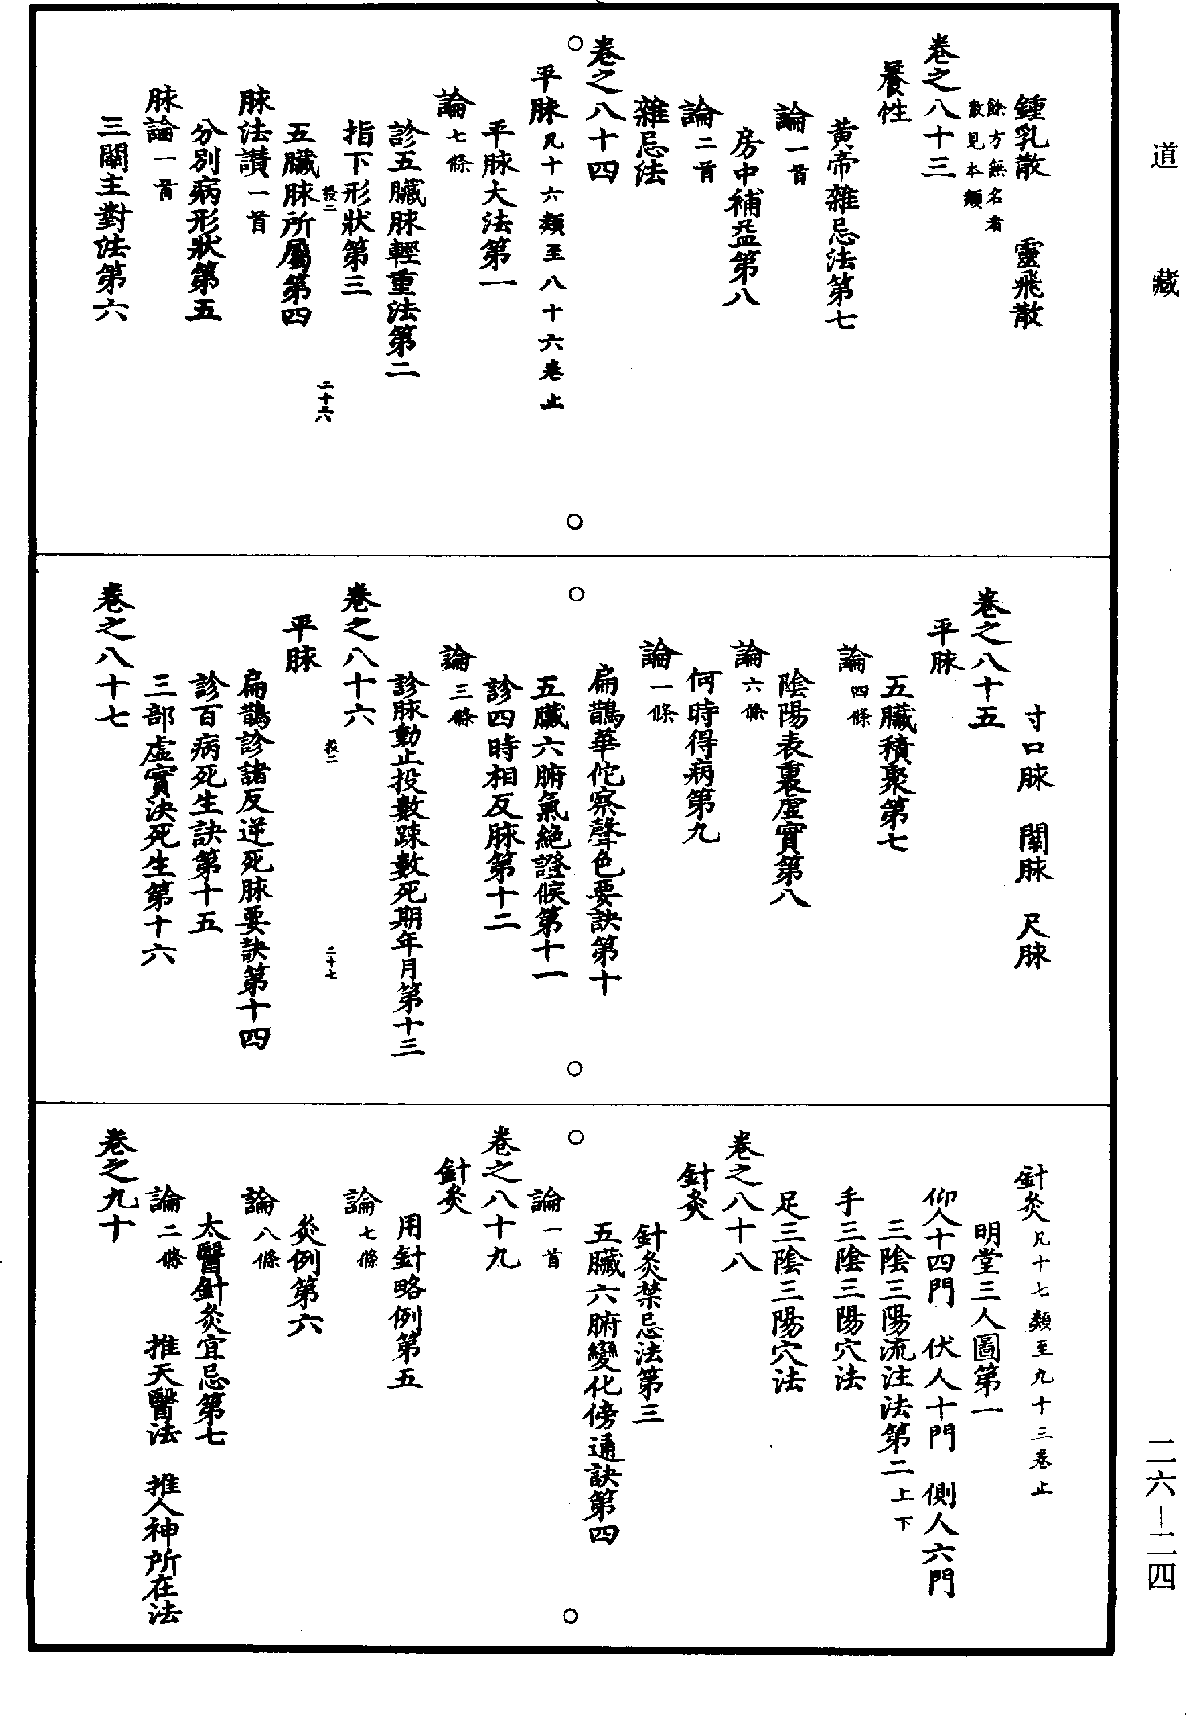 道藏
鍾乳散　靈飛散
餘方無名者
散見本類
卷之八十三
養性
黃帝雜忌法第七
論一首
房中補益第八
論二首
雜忌法
卷之八十四
平脉凡十六類至八十六卷止
平脉大法第一
論七條
診五臟脉輕重法第二
指下形狀第三
二十六
五臟脉所屬第四
脉法讚一首
分別病形狀第五
脉論一首
三關主對法第六
寸口脉　關脉　尺脉
卷之八十五
平脉
五臟積聚第七
論四條
陰陽表裏虛實第八
論六條
何時得病第九
論一條
扁鵲華佗察聲色要訣第十
五臟六腑氣絶證候第十一
診四時相反脉第十二
論三條
診脉動止投數踈數死期年月第十三
卷之八十六
二十七
平脉
扁鵲診諸反逆死脉要訣第十四
診百病死生訣第十五
三部虛實決死生第十六
卷之八十七
針灸凡十七類至九十三卷止
明堂三人圖第一
仰人十四門　伏人十門　側人六門
三陰三陽流注法第二上下
手三陰三陽穴法
足三陰三陽穴法
卷之八十八
針灸
針灸禁忌法第三
五臟六腑變化傍通訣第四
論一首
卷之八十九
針灸
用針略例第五
論七條
灸例第六
論八條
太醫針灸宜忌第七
論二條　推天醫法　推人神所在法
卷之九十
二六－二四